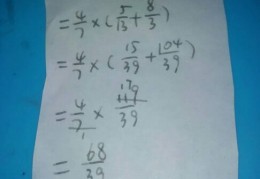 = 4/7 × ( 5/13 + 8/3 )
= 4/7 × ( 15/39 + 104/39 )
= 4/7 1 × 17 119/39
= 68/39